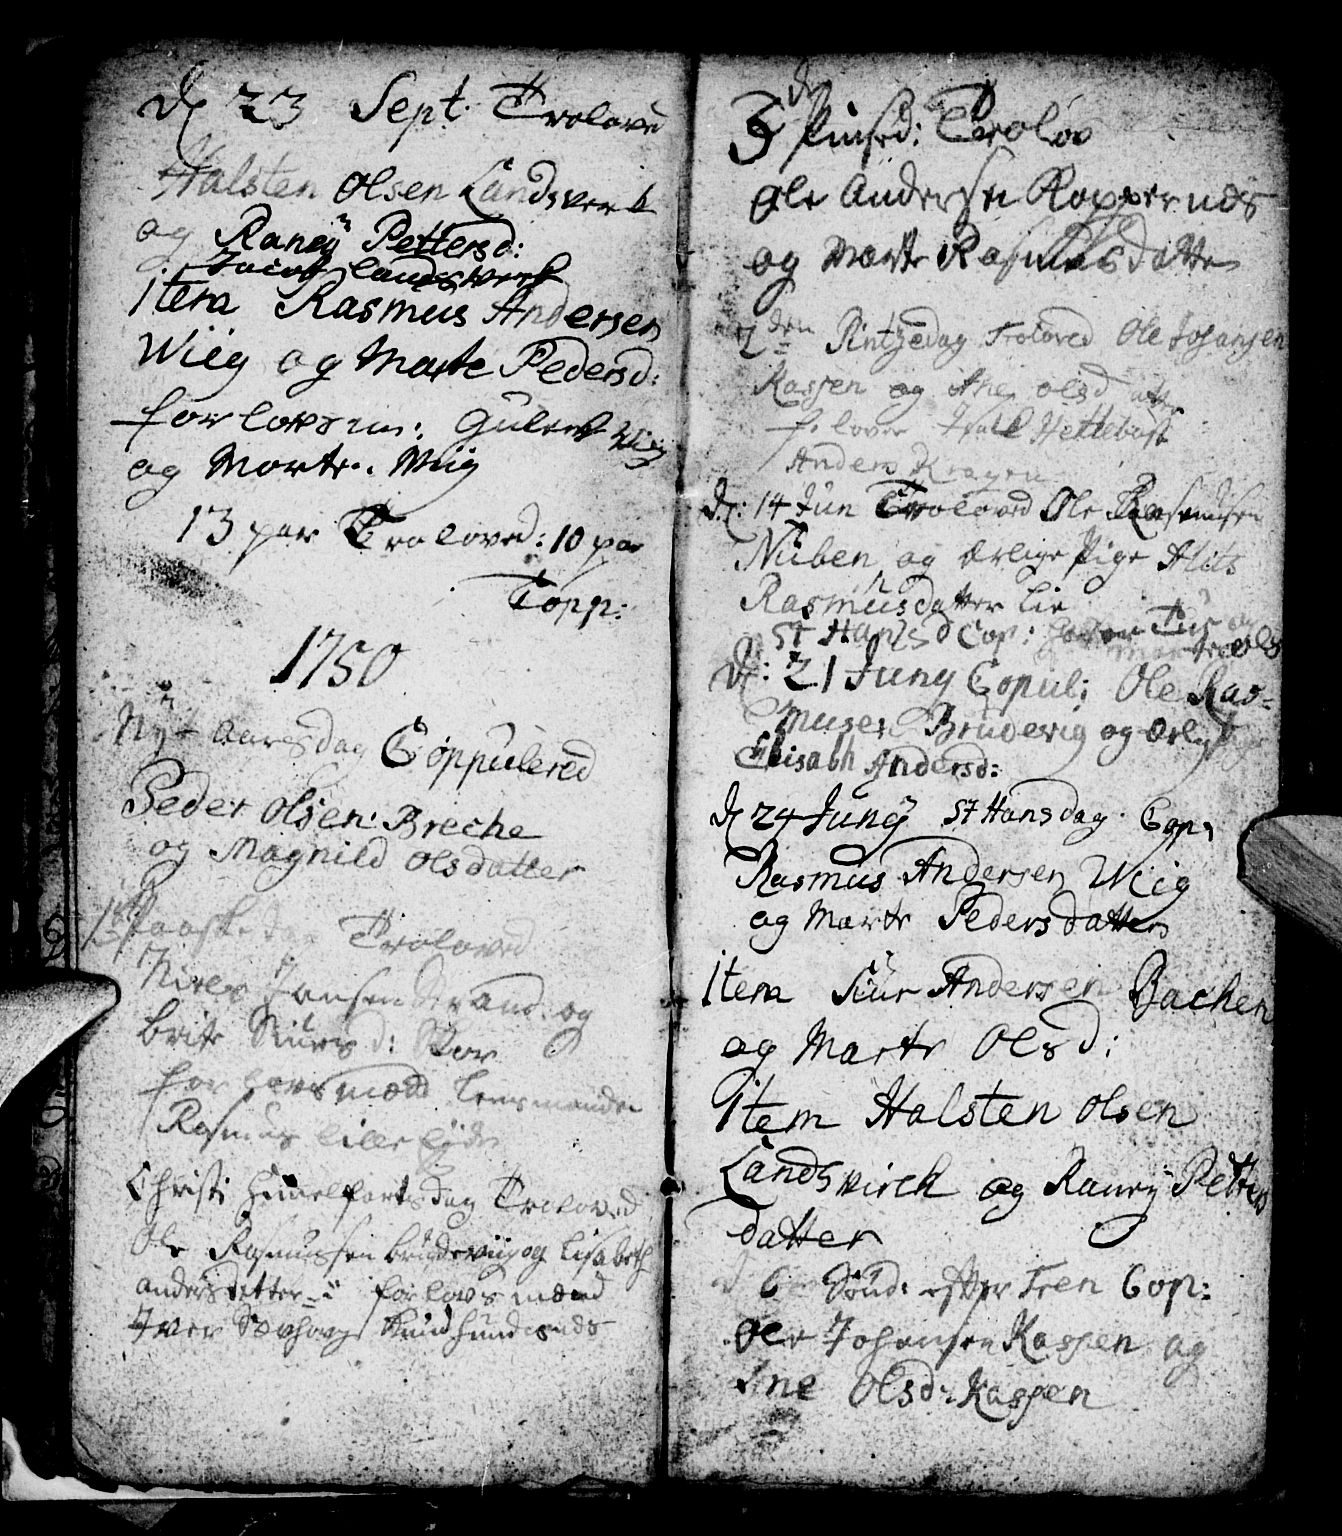 d 23 Sept. Troloved
Halsten Olsen Landsverk
og Raney Pettersd:
Jacob Landsverk
Item Rasmus Andersen
Wiig og Marte Pedersd:
forlovs m: Guleck Wiig
og Morten Wiig
13 par Troloved: 10 par
Copp:
1750
Nyt Aarsdag Coppulered
Peder Olsen Breche
og Magnild Olsdatter
1 Paaskedag Troloved
Niels Jansen Strand og
Brite Siursd:
forlovsmænd Lensmanden
Rasmus
Christi Himelfartsdag Troloved
Ole Rasmussen Brudeviig og Lisabeth
Andersdatter forlovsmænd
Iver
3 d Pinsed: Trolov
Ole Andersen Roppernuds
og Marte Rasmusdatter
2 den Pintzedag Troloved Ole Johansen
Kassen og Ane Olsdatter
forlover Hettebost
Anders
d: 14 Jun Troloved Ole
og ærlige Pige
Rasmusdatter Lie
St Hansd Cop:
d: 21 Juny Copul: Ole Ras=
musen Brudevig og ærlig Pige
Elisabh Andersd:
d 24 Juny St Hansdag Cop:
Rasmus Andersen Wiig
og Marte Pedersdatter
Item Siur Andersen Bachen
og Marte Olsd:
Item Halsten Olsen
Landsvirck og Raney Petters
datter
d 6 Sönd: efter Tren Cop:
Ole Johansen Kassen og
Ane Olsd: Kassen